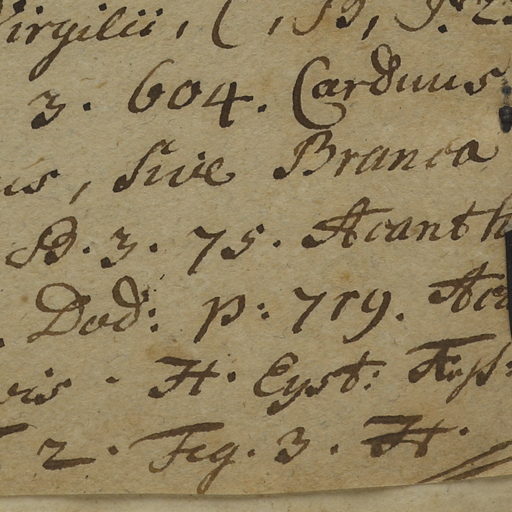 Virgilii, C, B,
3. 604. Carduus
us, sive Branca
JB. 3. 75. Acanth
. Dod: p: 719. Aca
vis. H. Eyst:
2. Fig. 3. H.